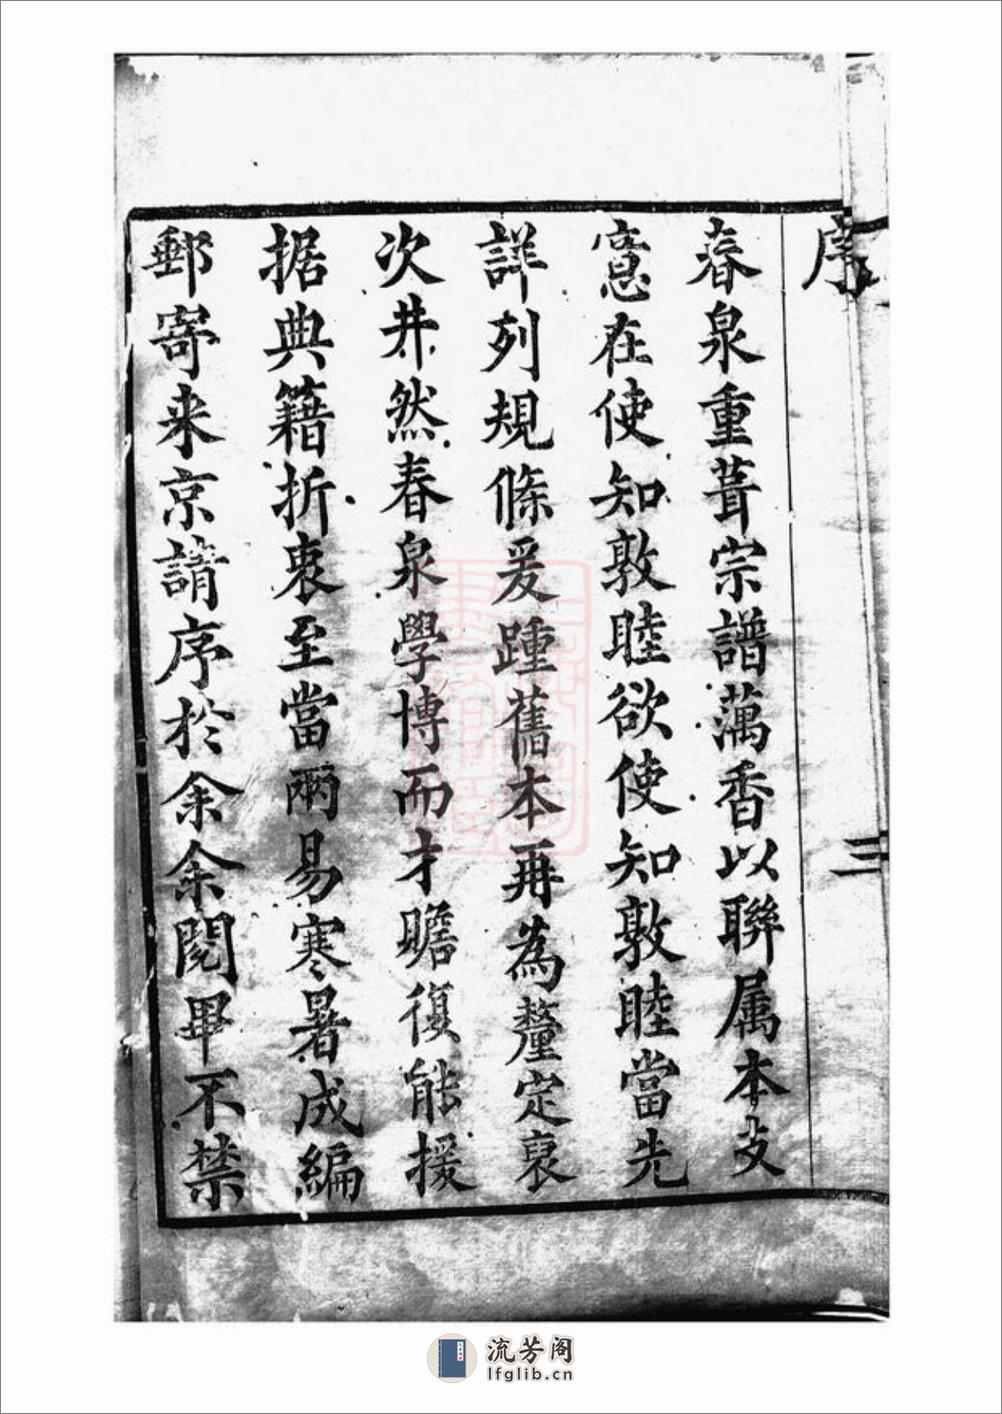 序
三
春泉重葺宗譜萬香以聯属本支
意在使知敦睦欲使知敦睦當先
詳列規條爰踵舊本再為釐定裒
次井然春泉學博而才贍復能援
据典籍折衷至當兩易寒暑成編
郵寄来京請序於余余閱畢不禁
流芳阁
lfglib.cn